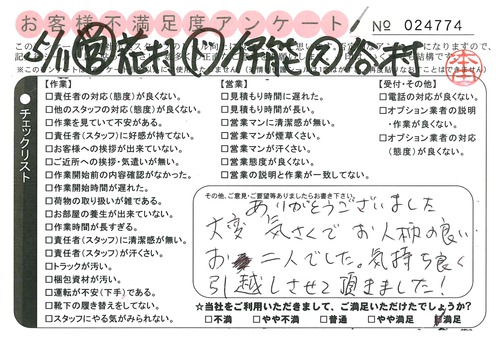 お客様不満足度アンケート
No 024774
5/11 営 花村
谷村
チェックリスト
【作業】
□責任者の対応(態度)が良くない。
□他のスタッフの対応(態度)が良くない。
□作業を見ていて不安がある。
□責任者(スタッフ)に好感が持てない。
□お客様への挨拶が出来ていない。
□ご近所への挨拶・気遣いが無い。
□作業開始前の内容確認がなかった。
□作業開始時間が遅れた。
□荷物の取り扱いが雑である。
□お部屋の養生が出来ていない。
□作業時間が長すぎる。
□責任者(スタッフ)に清潔感が無い。
□責任者(スタッフ)が汗くさい。
□トラックが汚い。
□梱包資材が汚い。
□運転が不安(下手)である。
□靴下の履き替えをしてない。
□スタッフにやる気がみられない。
【営業】
□見積もり時間に遅れた。
□見積もり時間が長い。
□営業マンに清潔感が無い。
□営業マンが煙草くさい。
□営業マンが汗くさい。
□営業態度が良くない。
□営業の説明と作業が一致してない。
【受付・その他】
□電話の対応が良くない。
□オプション業者の説明
・作業が良くない。
□オプション業者の対応
(態度)が良くない。
その他、ご意見・ご要望等ありましたらお書き下さい。
ありがとうございました
大変 気さくで お人柄の良い
お 二人でした。気持ち良く
引越しさせて頂きました!
☆当社をご利用いただきまして、ご満足いただけたでしょうか?
□不満 □やや不満 □普通 □やや満足 □満足